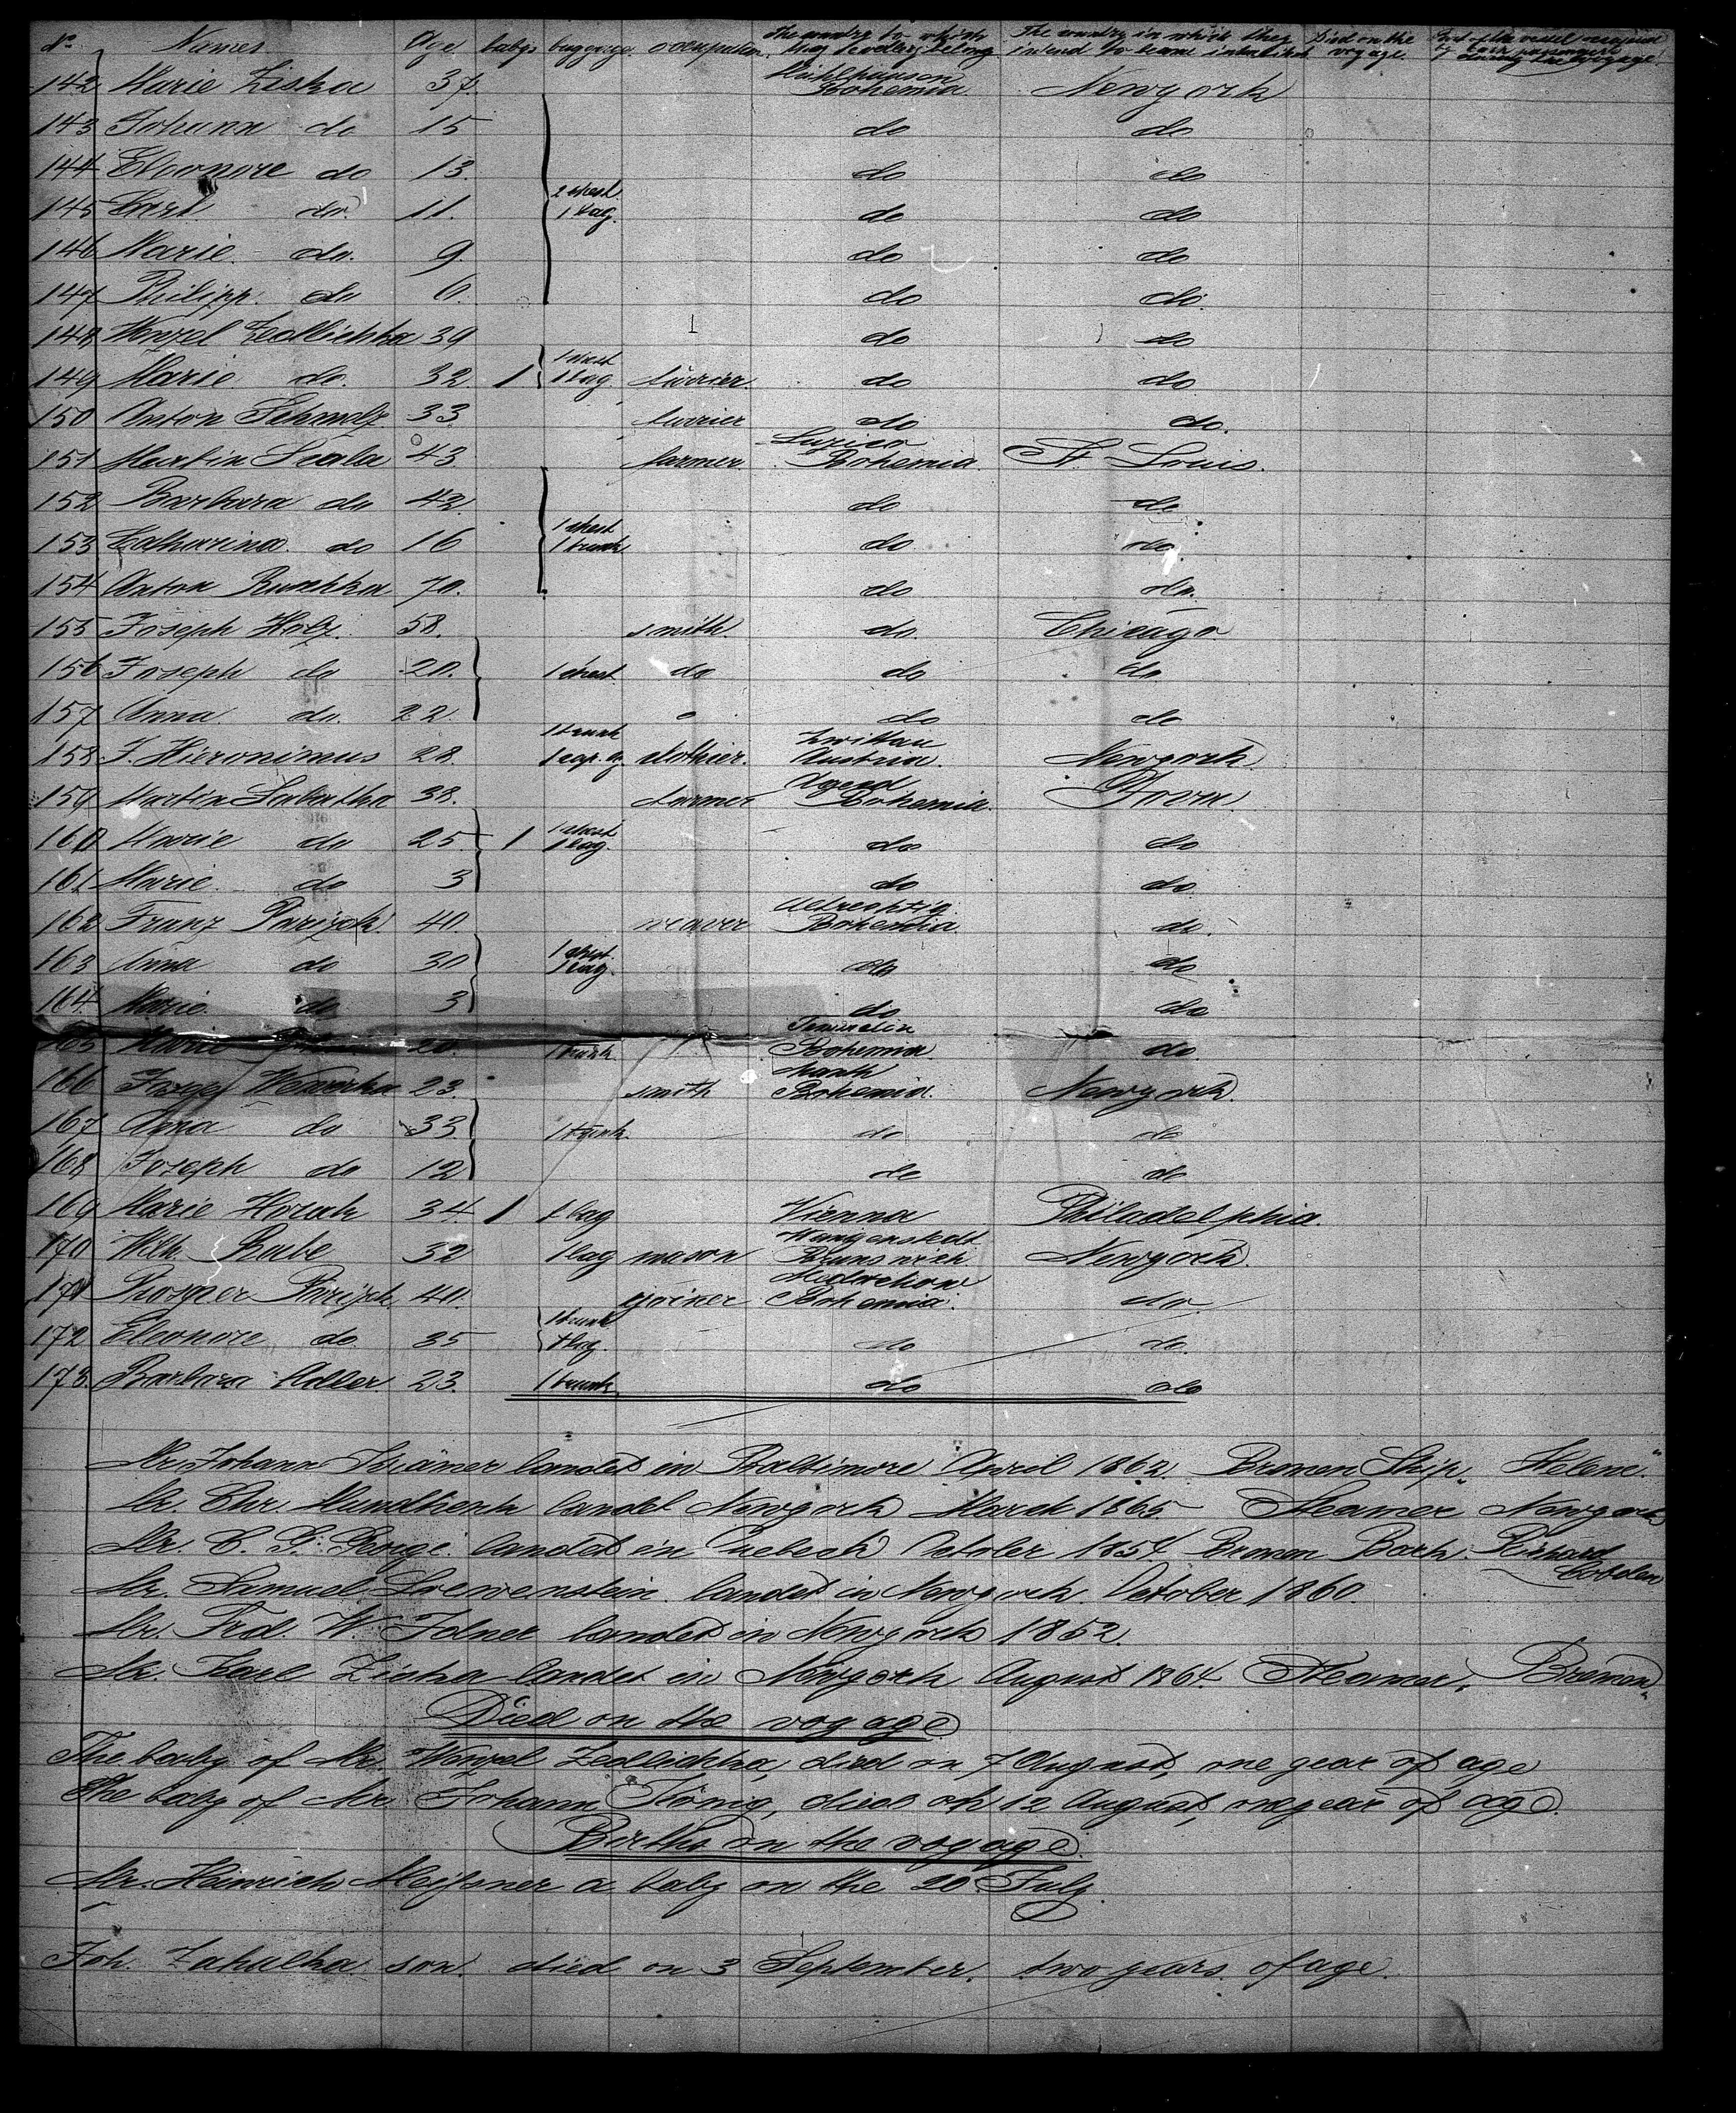 No Names Age babys baggage occupation The country to which they severally belong The country in which they intend to become inhabitants Died on the voyage Part of the vessel occupied by each passenger during the voyage
142 Marie Ziska 37. Mühlhausen Bohemia Newyork
143 Johann do 15 do do
144 Eleonore do 13. do do
145 Karl do 11. 2 chest 1 bag. do do
146 Marie do. 9. do do
147 Philipp. do 6. do do
148 Wenzel Zedlichka 39 do do
149 Marie do. 32 1 1 chest 1 bag furrier do do
150 Anton Schmolz 33 furrier do do.
151 Martin Scala 43 farmer Bohemia St. Louis.
152 Barbara do 42. do do
153 Catharina do 16 1 chest 1 trunk do do.
154 Anton Ruschka 70. do do.
155 Joseph Holz. 58. smith do. Chicago
156 Joseph do 20. 1 chest do do do
157 Anna do. 22. do do
158 J. Hieronimus 28. 1 trunk clothier. Zwittau Austria. Newyork
159 Martin Sabatka 38. farmer Bohemia. Iowa
160 Marie do 25 1 1 chest 1 bag. do do
161 Marie do 3 do do
162 Franz Parizek 40. weaver Bohemia. do.
163 Anna do 30 1 chest 1 bag. do do
164 Marie. do 3 do do
165 Marie 20. 1 trunk Bohemia do
166 23. smith Bohemia. Newyork.
167 Anna do 33 1 trunk. do do
168 Joseph do 12 do do
169 Marie Horak 34. 1 1 bag Vienna Philadelphia.
170 Wilh. Rube 32 1 bag mason Brunswick Newyork.
171 Parizek 40. joiner Bohemia. do.
172 Eleonore do. 35 1 trunk 1 bag. do do.
173. Barbara Adler 23. 1 trunk. do do
Mr. Johann Krämer landed in Baltimore April 1862. Bremen Ship „Helene."
Mr. Chr. Mundhenk landet Newyork March 1865 Steamer Newyork
Mr. C. landed in Quebeck October 1854. Bremen Bark. Richard Cobden
Mr. Samuel Loewenstein. landed in Newyork. October 1860.
Mr. Frd. W. Folner landed in Newyork 1852.
Mr. Karl Ziska landet in Newyork August 1864. Steamer „Bremen"
Died on the voyage
The baby of Mr. Wenzel Zedlichka, died on 7 August, one year of age
The baby of Mr. Johann König, died on 12 August, one year of age.
Births on the voyage.
Mr. Heinrich Meißner a baby on the 20. July.
Joh. Zahalka son. died on 3 September. two years of age.